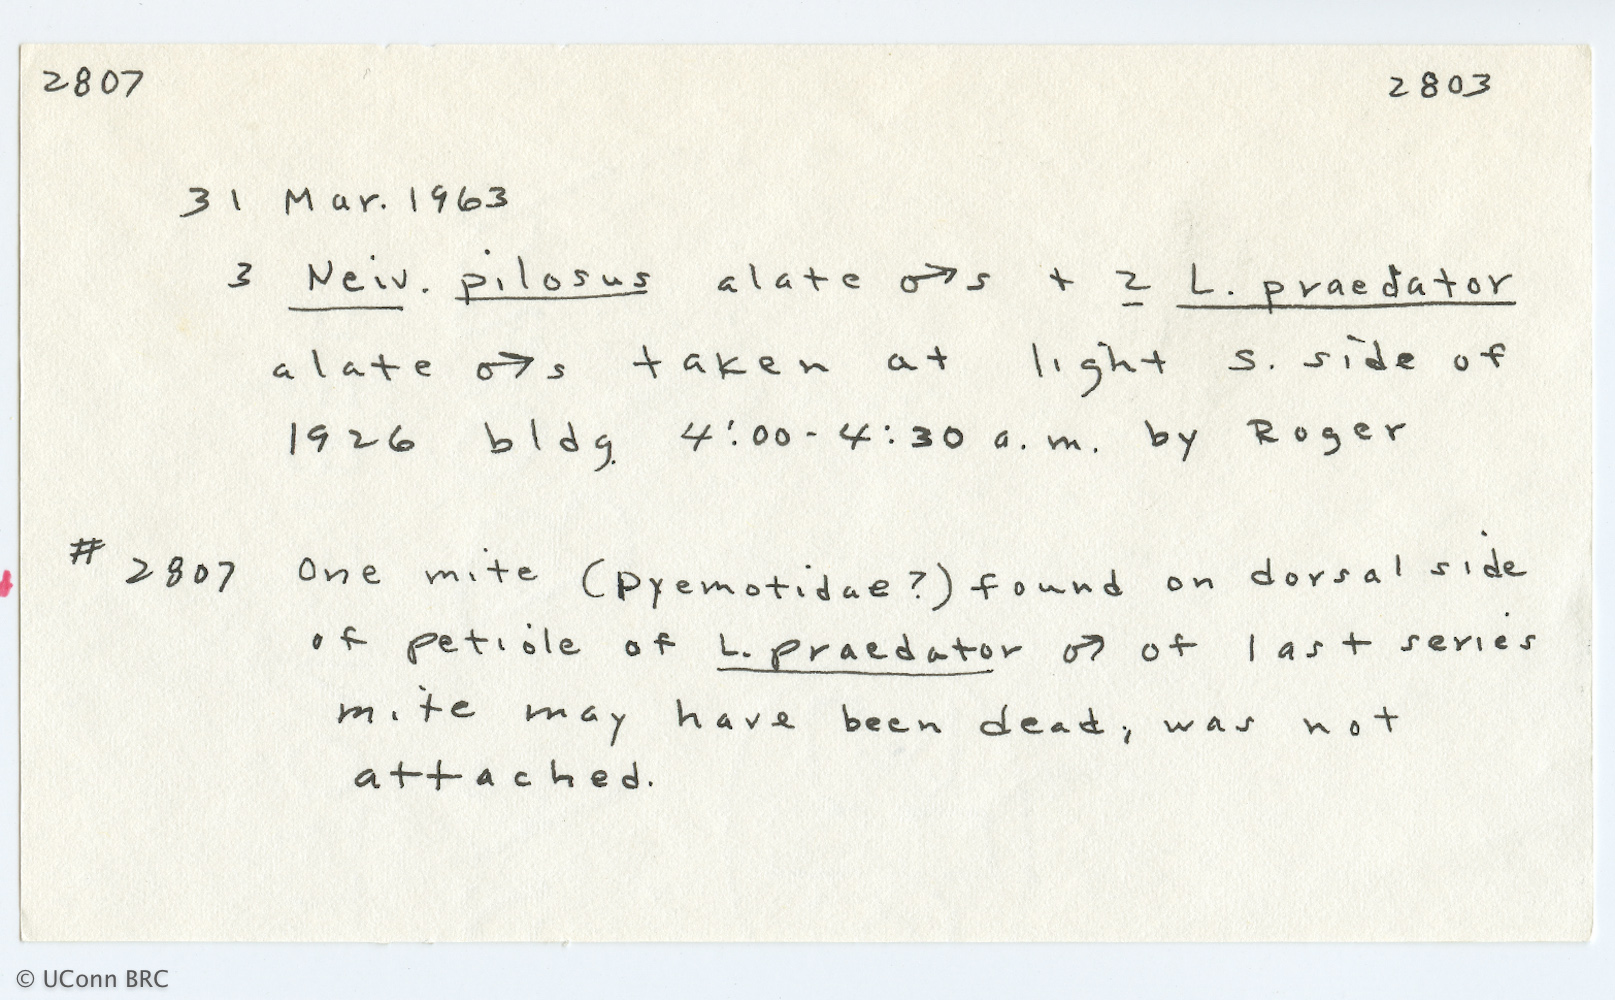 2807 2803
31 Mar. 1963
3 Neiv. pilosus alate ♂s + 2 L. praedator
alate ♂s taken at light S. side of
1926 bldg. 4:00-4:30 a.m. by Roger
# 2807 One mite (Pyemotidae?) found on dorsal side
of petiole of L. praedator ♂ of last series
mite may have been dead, was not
attached.
© UConn BRC